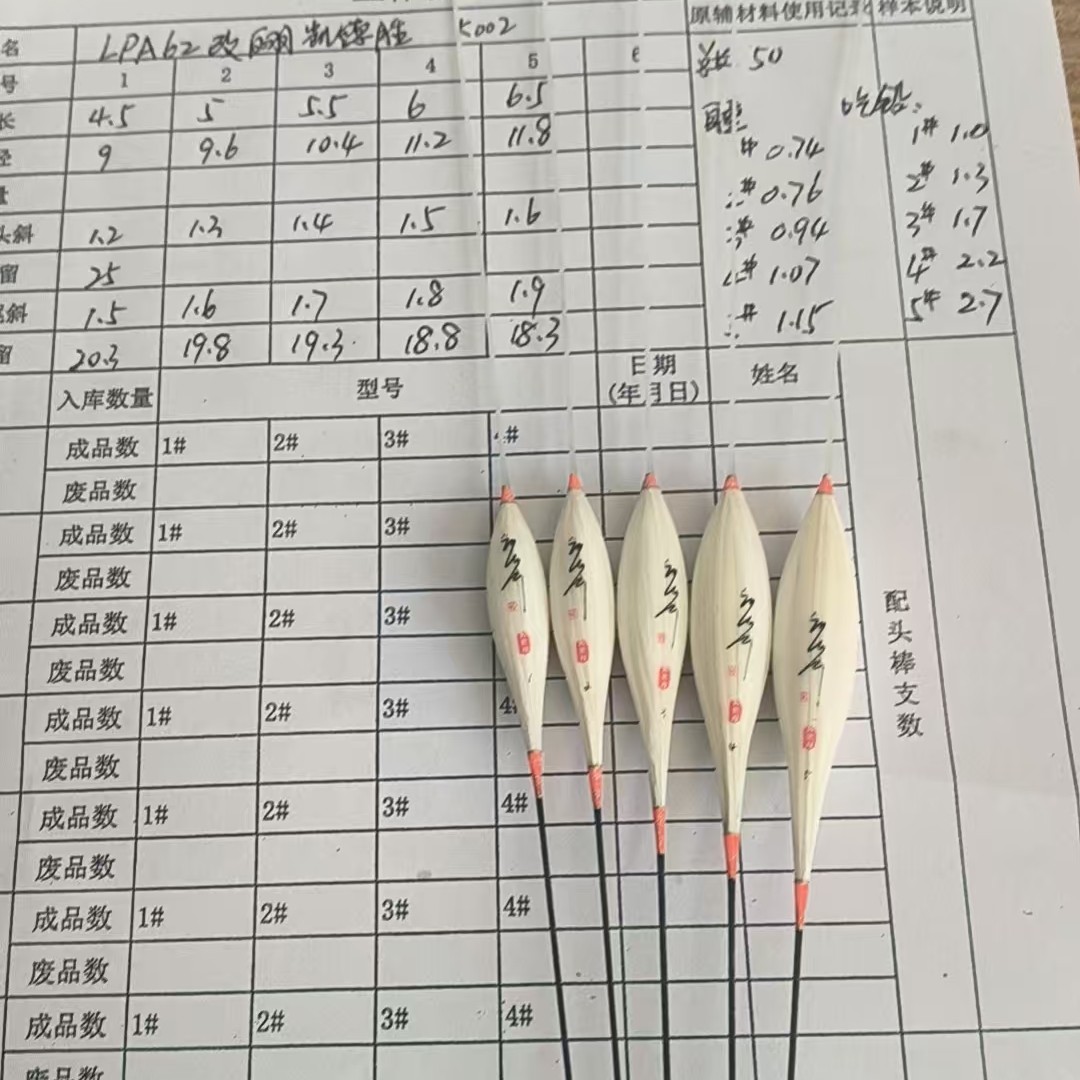 原辅材料使用记录 样本说明
名 LPA62改 5002
号 1 2 3 4 5 6
长 4.5 5 5.5 6 6.5
径 9 9.6 10.4 11.2 11.8
量
头斜 1.2 1.3 1.4 1.5 1.6
留 25
尾斜 1.5 1.6 1.7 1.8 1.9
留 20.3 19.8 19.3 18.8 18.3
总长 50
吃铅:
# 0.74 1# 1.0
# 0.76 2# 1.3
# 0.94 3# 1.7
# 1.07 4# 2.2
# 1.15 5# 2.7
入库数量 型号 日期 (年月日) 姓名
成品数 1# 2# 3# #
废品数
成品数 1# 2# 3#
废品数
成品数 1# 2# 3#
废品数
成品数 1# 2# 3# 4
废品数
成品数 1# 2# 3# 4#
废品数
成品数 1# 2# 3# 4#
废品数
成品数 1# 2# 3# 4#
废品数
配头棒支数
1
2
3
4
5